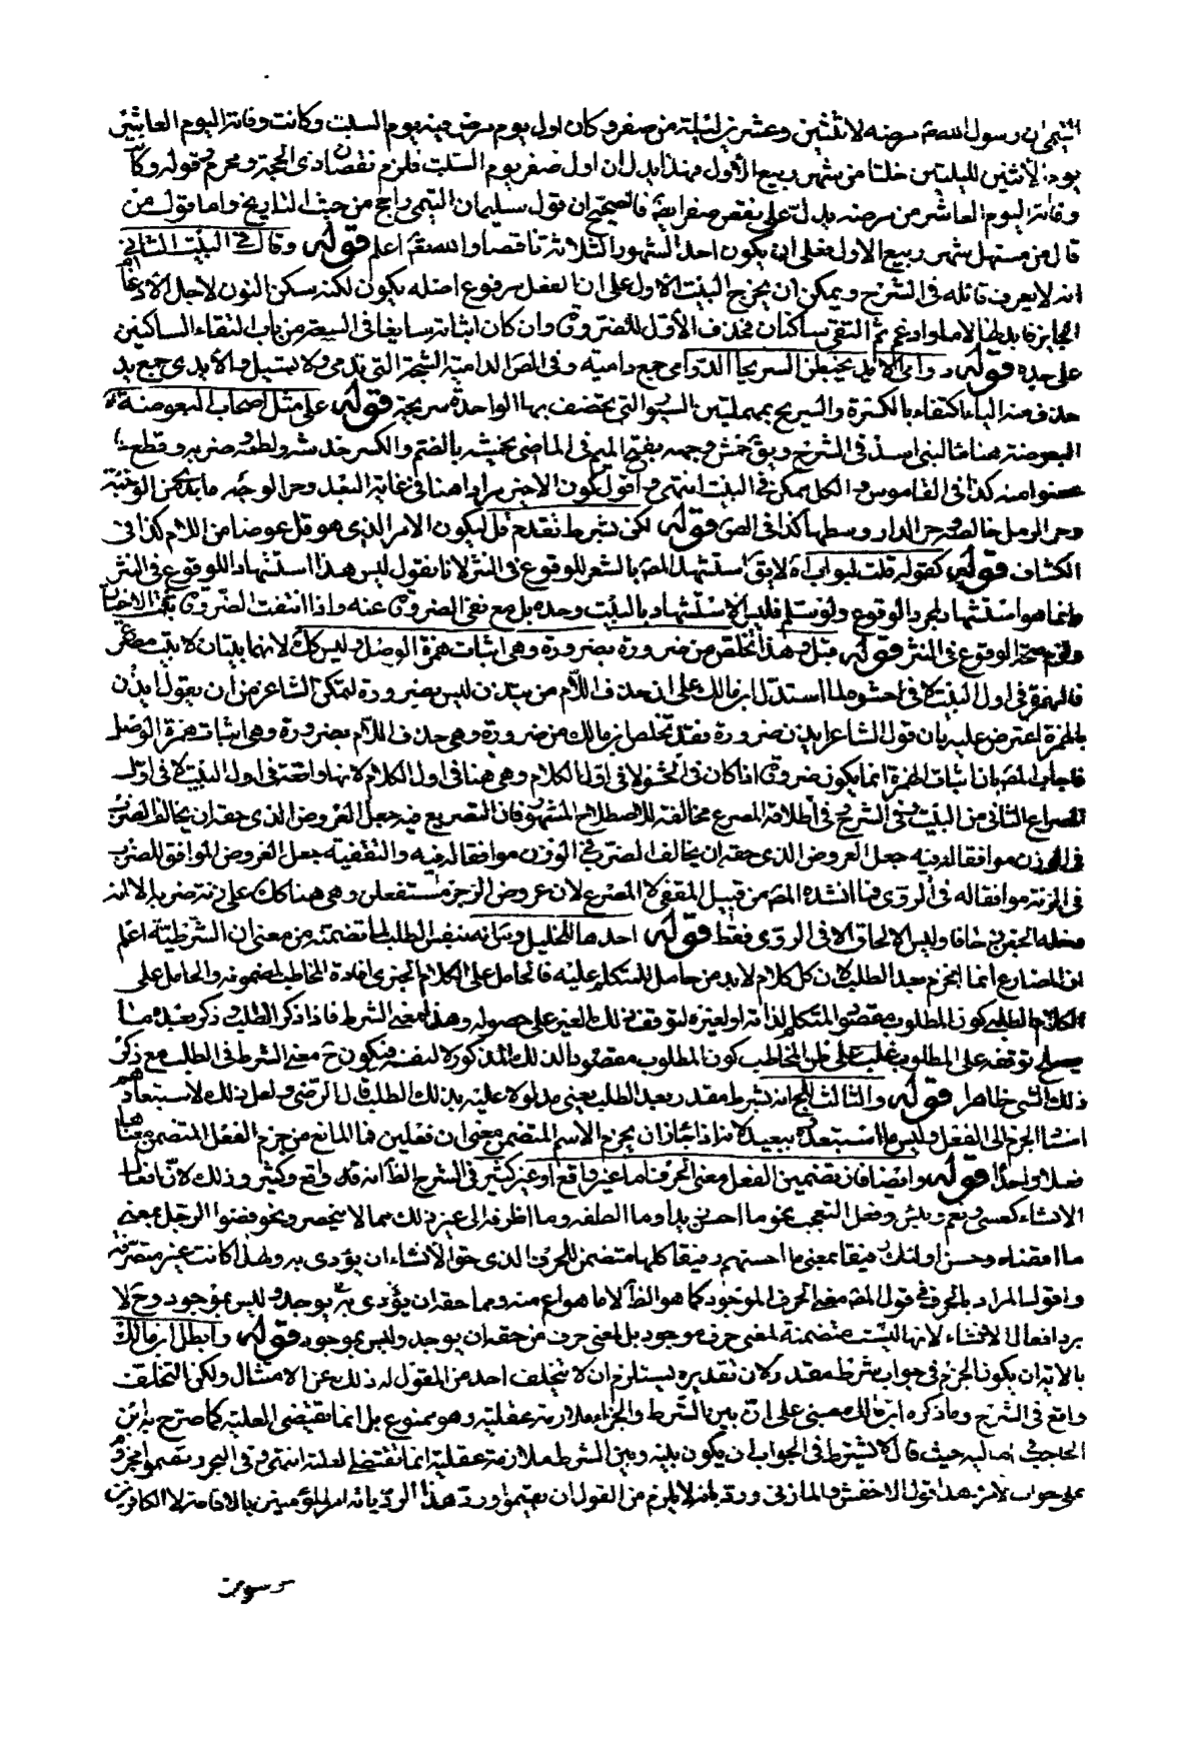 التيمى ان رسول الله مرضه لاثنين وعشرين ليلة من صفر وكان اول يوم مرض فيه يوم السبت وكانت وفاته اليوم العاشر
يوم الاثنين لليلتين خلتا من شهر ربيع الأول فهذا يدل ان اول صفر يوم السبت فلزم نقصان ذى الحجة ومحرم قوله وكا
وفاته اليوم العاشر من مرضه يدل على نقص صفر ايضا فالصحيح ان قول سليمان التيمى راجح من حيث التاريخ واما قول من
قال من مستهل شهر ربيع الاول فعلى ان يكون احد الشهور الثلاثة ناقصا والله تعالى اعلم قوله وقال فى البيت الثانى
انه لا يعرف قائله فى الشرح ويمكن ان يخرج البيت الأول على ان الفعل مرفوع اصله يكون لكنه سكن النون لاجل الادغام
الجايز فابدلها لاما وادغم ثم التقى ساكنان فحذف الأول للضرورة وان كان اثباته سايغا فى السعة من باب التقاء الساكنين
على حده قوله دوامى الايد يخبطن السريحا الدوامى جمع دامية وفى الص الدامية الشجة التى تدمى ولا تسيل والأيدى جمع يد
حذف منه الياء اكتفاء بالكسرة والسريح بمهملتين السيور التى يخصف بها الواحدة سريحة قوله على مثل اصحاب البعوضة
البعوضة هنا ماء لبنى اسد فى الشرح ويق خمش وجهه بفتح الميم فى الماضى يخمشه بالضم والكسر خدشه ولطمه وضربه وقطع
عضوا منه كذا فى القاموس والكل ممكن فى البيت انتهى واقول كون الاخير مرادا هنا فى غاية البعد وحر الوجه ما بدا من الوجنة
وحر الرمل خالصه وحر الدار وسطها كذا فى الص قوله لكن بشرط تقدم قل ليكون الامر الذى هو قل عوضا من اللام كذا فى
الكشاف قوله كقوله قلت لبواب اه لا يق استشهد المص بالشعر للوقوع فى النثر لانا نقول ليس هذا استشهادا للوقوع فى النثر
وانما هو استشهاد لمجرد الوقوع ولو سلم فليس الاستشهاد بالبيت وحده بل مع نفى الضرورة عنه واذا انتفت الضرورة
صح الوقوع فى النثر قوله قيل وهذا تخلص من ضرورة بضرورة وهى اثبات همزة الوصل وليس كك لانهما بيتان لا بيت مصرع
فالهمزة فى اول البيت لا فى احشوه لما استدل ابن مالك على ان حذف اللام من تيذن ليس بضرورة لتمكن الشاعر من ان يقول ايذن
بالهمزة اعترض عليه بان قول الشاعر ايذن ضرورة فقد تخلص ابن مالك من ضرورة وهى حذف اللام بضرورة وهى اثبات همزة الوصل
فاجاب المص بان اثبات الهمزة انما يكون ضرورة اذا كان فى الحشو لا فى اول الكلام وهى هنا فى اول الكلام لانها واقعة فى اول البيت لا فى اول
المصراع الثانى من البيت فى الشرح فى اطلاقه المصرع مخالفة للاصطلاح المشهور فان التصريع فيه جعل العروض الذى حقه ان يخالف الضرب
فى الوزن موافقا له فيه جعل العروض الذى حقه ان يخالف الضرب فى الوزن موافقا له فيه والتقفية جعل العروض الموافق للضرب
فى الزنة موافقا له فى الروى فما انشده المص من قبيل المقفى لا المصرع لان عروض الرجز مستفعلن وهى هنا كك على زنة ضربه الا انه
دخله الخبن فى خافا وليس الالحاق الا فى الروى فقط قوله احدها للخليل وس انه بنفس الطلب لما تضمنه من معنى ان الشرطية اعلم
ان المضارع انما انجزم بعد الطلب لان كل كلام لا بد من حامل للمتكلم عليه فالحامل على الكلام الخبرى افادة المخاطب لمضمونه والحامل على
الكلام الطلبى كون المطلوب مقصود المتكلم لذاته او لغيره لتوقف ذلك الغير على حصوله وهذا معنى الشرط فاذا ذكر الطلب وذكر بعده ما
يصلح توقفه على المطلوب غلب على ظن المخاطب كون المطلوب مقصودا لذلك المذكور لا لنفسه فيكون ح معنى الشرط فى الطلب مع ذكر
ذلك الشئ ظاهرا قوله والثالث للج انه بشرط مقدر بعد الطلب يعنى مدلولا عليه بذلك الطلب قال الرضى ولعل ذلك لاستبعادهم
اسناد الجزم الى الفعل وليس ما استبعدوه ببعيد لانه اذا جاز ان يجزم الاسم المتضمن معنى ان فعلين فما المانع من جزم الفعل المتضمن معناها
فعلا واحدا قوله وايضا فان تضمين الفعل معنى الحرف اما غير واقع او غير كثير فى الشرح الظ انه قد واقع وكثير وذلك لان افعال
الانشاء كعسى ونعم وبئس وفعل التعجب نحو ما احسن زيدا وما الطفه وما اظرفه الى غير ذلك مما لا ينحصر ونحو قضو الرجل بمعنى
ما اقضاه وحسن اولئك رفيقا بمعنى ما احسنهم رفيقا كلها متضمن للحرف الذى حق الانشاء ان يؤدى به ولهذا كانت غير متصرفة
واقول المراد بالحرف فى قول المص معنى الحرف الموجود كما هو الظ لا ما هو اعم منه ومما حقه ان يؤدى به يوجد وليس بموجود وح لا
يرد افعال الانشاء لانها ليست متضمنة لمعنى حرف موجود بل لمعنى حرف من حقه ان يوجد وليس بموجود قوله وابطل ابن مالك
بالاية ان يكون الجزم فى جواب شرط مقدر لان تقديره يستلزم ان لا يتخلف احد من المقول له ذلك عن الامتثال ولكن التخلف
واقع فى الشرح وما ذكره ابن مالك مبنى على ان بين الشرط والجزاء ملازمة عقلية وهو ممنوع بل انما يقتضى العلية كما صرح به ابن
الحاجب فى اماليه حيث قال لا يشترط فى الجواب ان يكون بينه وبين الشرط ملازمة عقلية انما تقتضى العلة انتهى وفى البحر ويقيموا مجزوم
على جواب الامر هذا قول الاخفش والمازنى ورد بانه لا يلزم من القول ان يقيموا ورد هذا الرد بانه امر للمؤمنين بالاقامة لا الكافرين